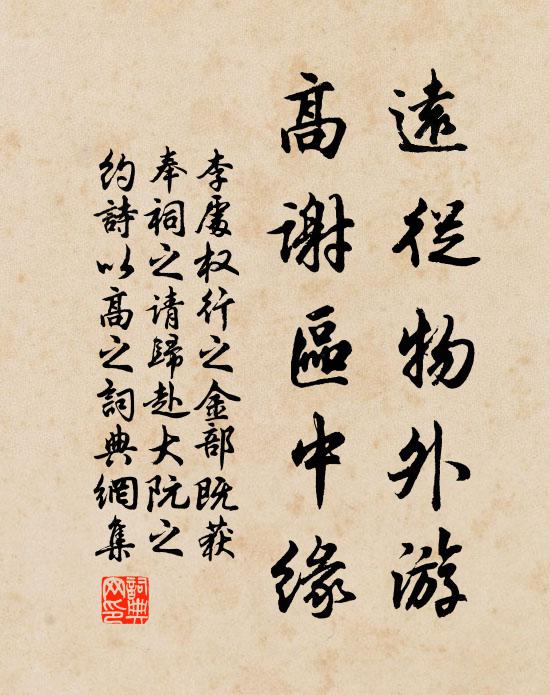 遠從物外游
高謝區中緣
李處权行之金部既获
奉祠之请歸赴大阮之
约詩以高之詞典網集
詞典網印